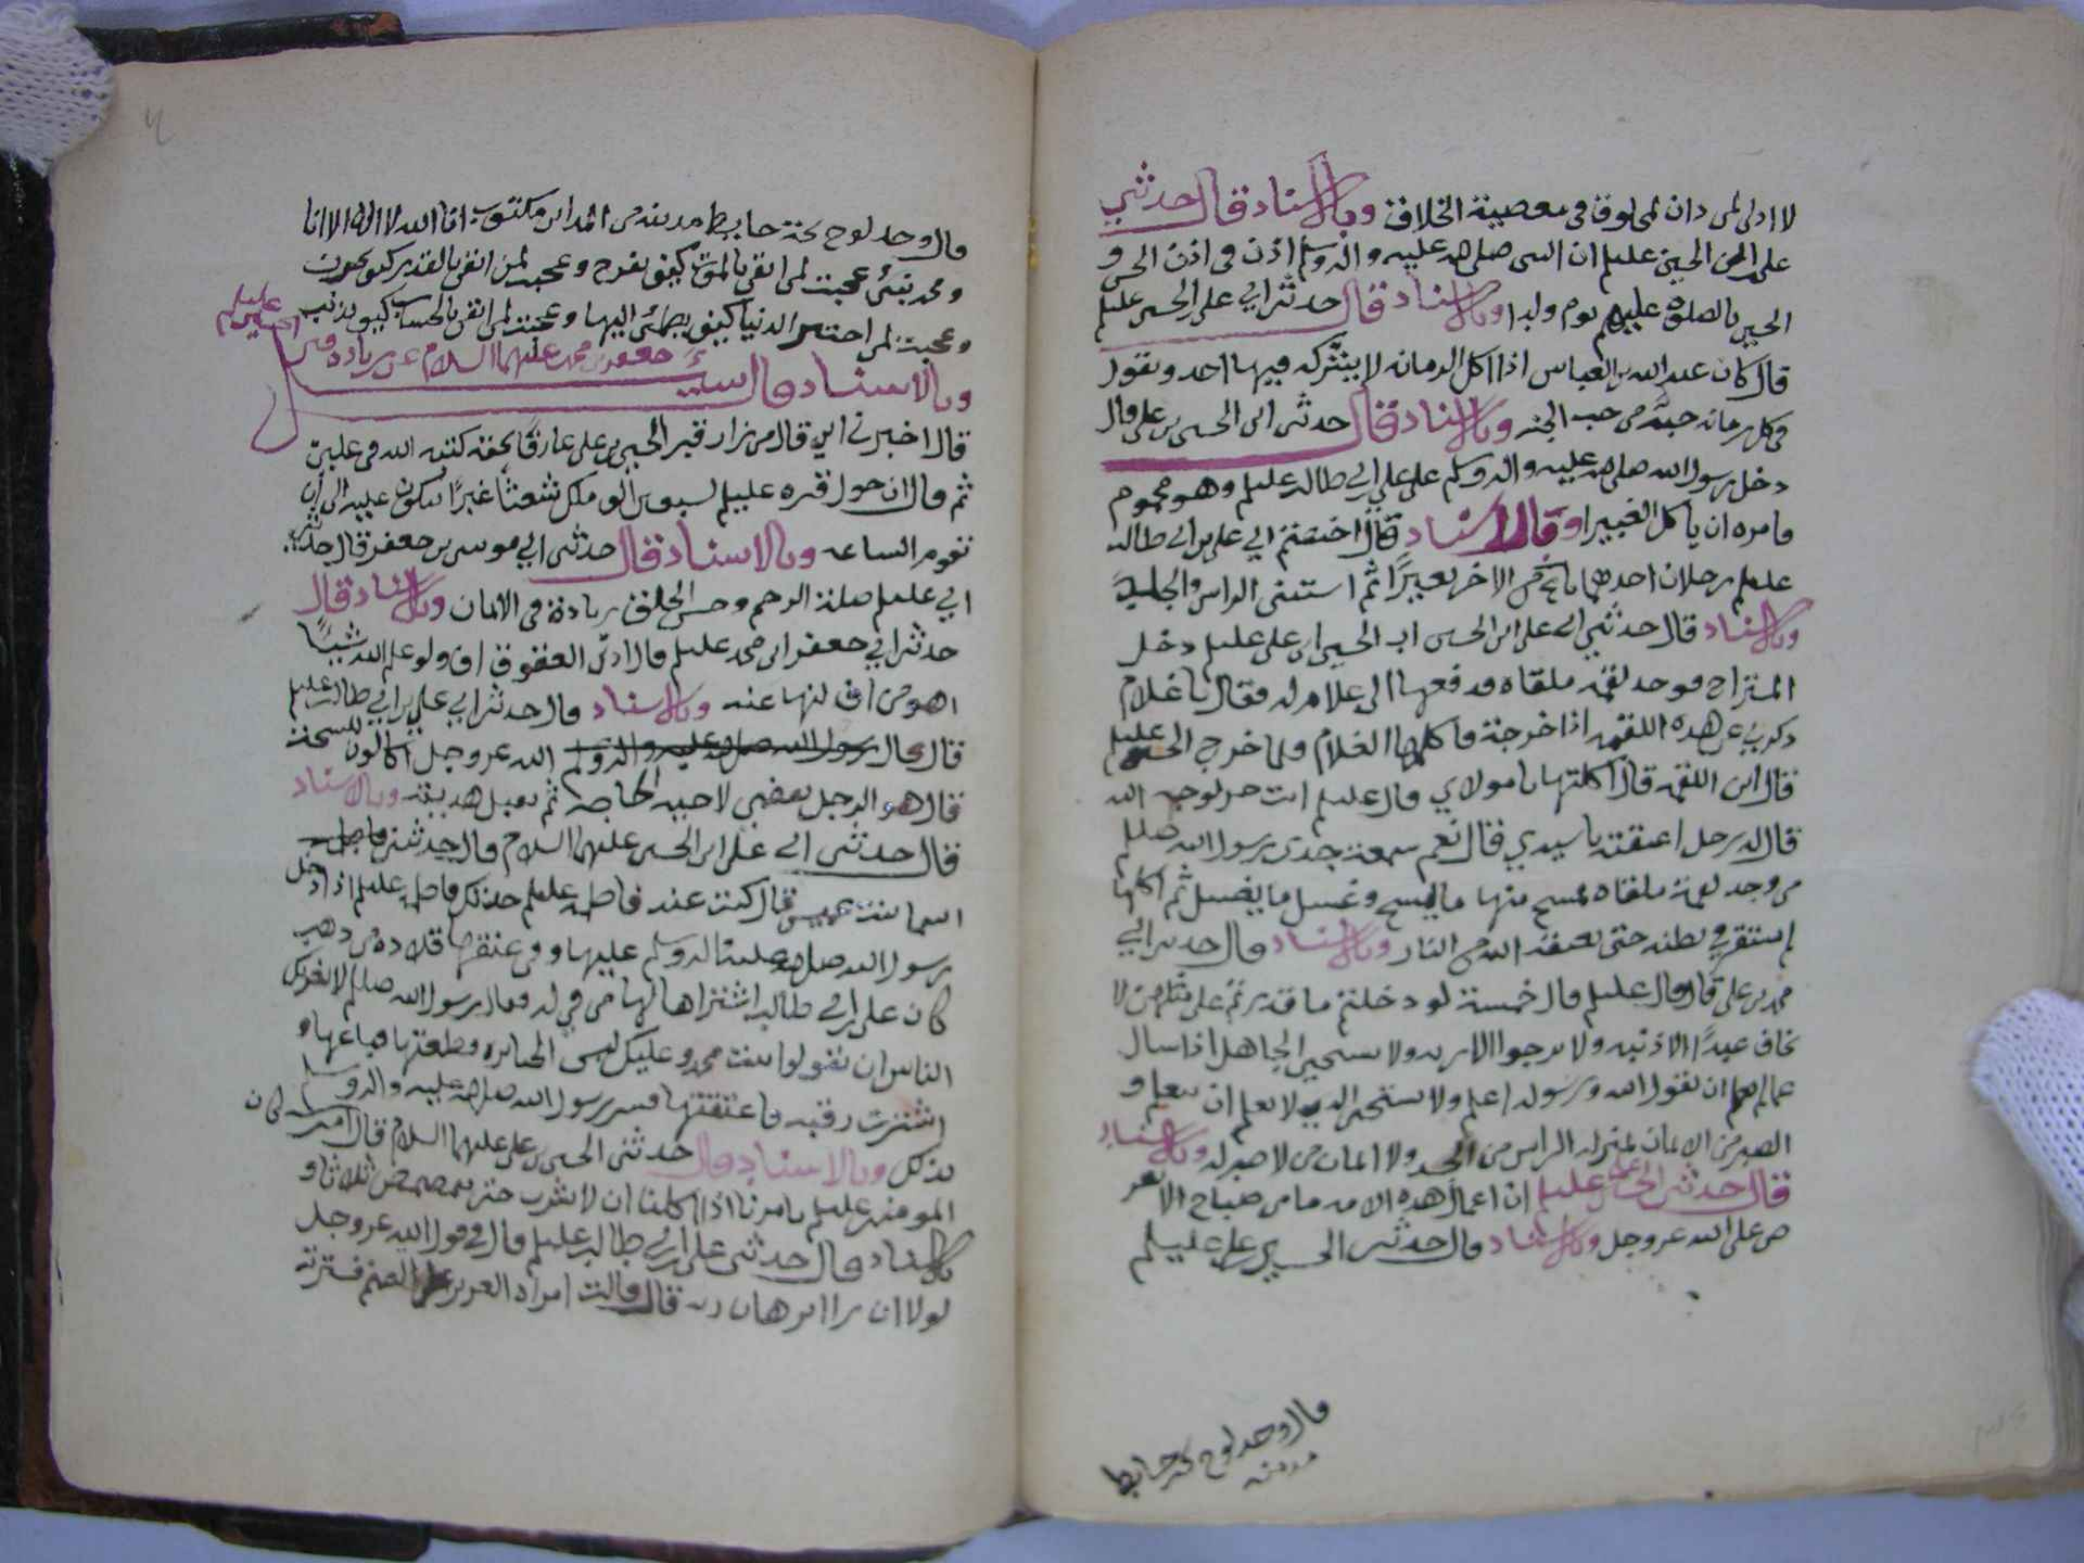 لا ادلى لمن دان لمخلوق في معصية الخلاق وبالاسناد قال حدثني
علي ابن الحسين عليلم ان النبي صلى الله عليه واله وسلم اذن في اذن الحسن و
الحسين بالصلوة عليهم يوم ولدا وبالاسناد قال حدثنا ابي علي الحسين عليلم
قال كان عبد الله بن العباس اذا اكل الرمانه لا يشركه فيها احد ويقول
في كل رمانه حبة من حب الجنه وبالاسناد قال حدثني ابي الحسين بن علي قال
دخل رسول الله صلى الله عليه واله وسلم على علي ابن ابي طالب عليلم وهو محموم
فامره ان ياكل الغبيرا وقال الاسناد قال اختصم الى علي بن ابي طالب
عليلم رجلان احدهما باع من الاخر بعيرًا ثم استثنى الراس والجلد
وبالاسناد قال حدثني ابي علي ابن الحسين ان الحسين ابن علي عليلم دخل
المستراح فوجد لقمه ملقاه فدفعها الى غلام له فقال يا غلام
ذكرني عن هذه اللقمه اذا خرجت فاكلها الغلام فلما خرج الحسين عليلم
قال اين اللقمه قال اكلتها يا مولاي قال عليلم انت حر لوجه الله
قال له رجل اعتقته يا سيدي فقال نعم سمعت جدي رسول الله صلعم
من وجد لقمة ملقاه يمسح منها ما يمسح وغسل ما يغسل ثم اكلها
لم تستقر في بطنه حتى يعتقه الله من النار وبالاسناد قال حدثنا ابي
محمد بن علي قال قال عليلم قال خمسة لو دخلتم ما قدرتم على مثلهن لا
يخاف عبدًا الا ذنبه ولا يرجوا الا ربه ولا يستحي الجاهل اذا سال
عما لا يعلم ان يقول الله ورسوله اعلم ولا يستحي الذي لا يعلم ان يتعلم و
الصبر من الايمان بمنزله الراس من الجسد ولا ايمان من لا صبر له وبالاسناد
قال حدثني الحسين بن علي عليلم ان اعمال هذه الامه ما من صباح الا تعر
ض على الله عز وجل وبالاسناد قال حدثني الحسين بن علي عليلم
قال وجد لوح تحت حايط
مدينه
قال وجد لوح تحت حايط مدينه من المداين مكتوب انا الله لا اله الا انا
و محمد نبيي عجبت لمن ايقن بالموت كيف يفرح وعجبت لمن ايقن بالقدر كيف يحزن
و عجبت لمن اختبر الدنيا كيف يطمئن اليها وعجبت لمن ايقن بالحساب كيف يذنب
وبالاسناد قال سئل جعفر بن محمد عليهما السلام عن زيارة قبر
الحسين عليلم
قال اخبرني ابي قال من زار قبر الحسين بن علي عارفًا بحقه كتبه الله في عليين
ثم قال ان حول قبره عليلم لسبعون الف ملك شعثا غبرًا يبكون عليه الى ان
تقوم الساعه وبالاسناد قال حدثني ابي موسى بن جعفر قال حدثني
ابي عليلم صلة الرحم وحسن الخلق زيادة في الايمان وبالاسناد قال
حدثنا ابي جعفر ابن محمد عليلم قال ادنى العقوق اف ولو علم الله شيئًا
اهون من اف لنها عنه وبالاسناد قال حدثنا ابي علي بن ابي طالب عليلم
قال قال رسول الله صلى الله عليه واله وسلم الله عز وجل اكالون للسحت
قال هو الرجل يقضي لاخيه الحاجه ثم يقبل هديته وبالاسناد
قال حدثني ابي علي ابن الحسين عليهما السلام قال حدثتني فاطمه
اسما بنت عميس قال كنت عند فاطمه عليلم جدتك فاطمه عليلم اذ دخل
رسول الله صلى الله عليه واله وسلم عليها وفي عنقها قلادة من ذهب
كان علي بن ابي طالب اشتراها لها من في له فقال رسول الله صلعم لا يغرنك
الناس ان يقولوا بنت محمد وعليك لبس الجبابره فقطعتها فباعها و
اشترت رقبه فاعتقتها فسر رسول الله صلى الله عليه واله وسلم
بذلك وبالاسناد قال حدثني الحسين بن علي عليهما السلام قال امير كان
المومنين عليلم يامرنا اذا اكلنا ان لا نشرب حتى نتمضمض ثلاثا و
بالاسناد قال حدثني علي بن ابي طالب عليلم قال في قول الله عز وجل
لولا ان را برهان ربه قال قالت امراة العزيز على الصنم فسترته